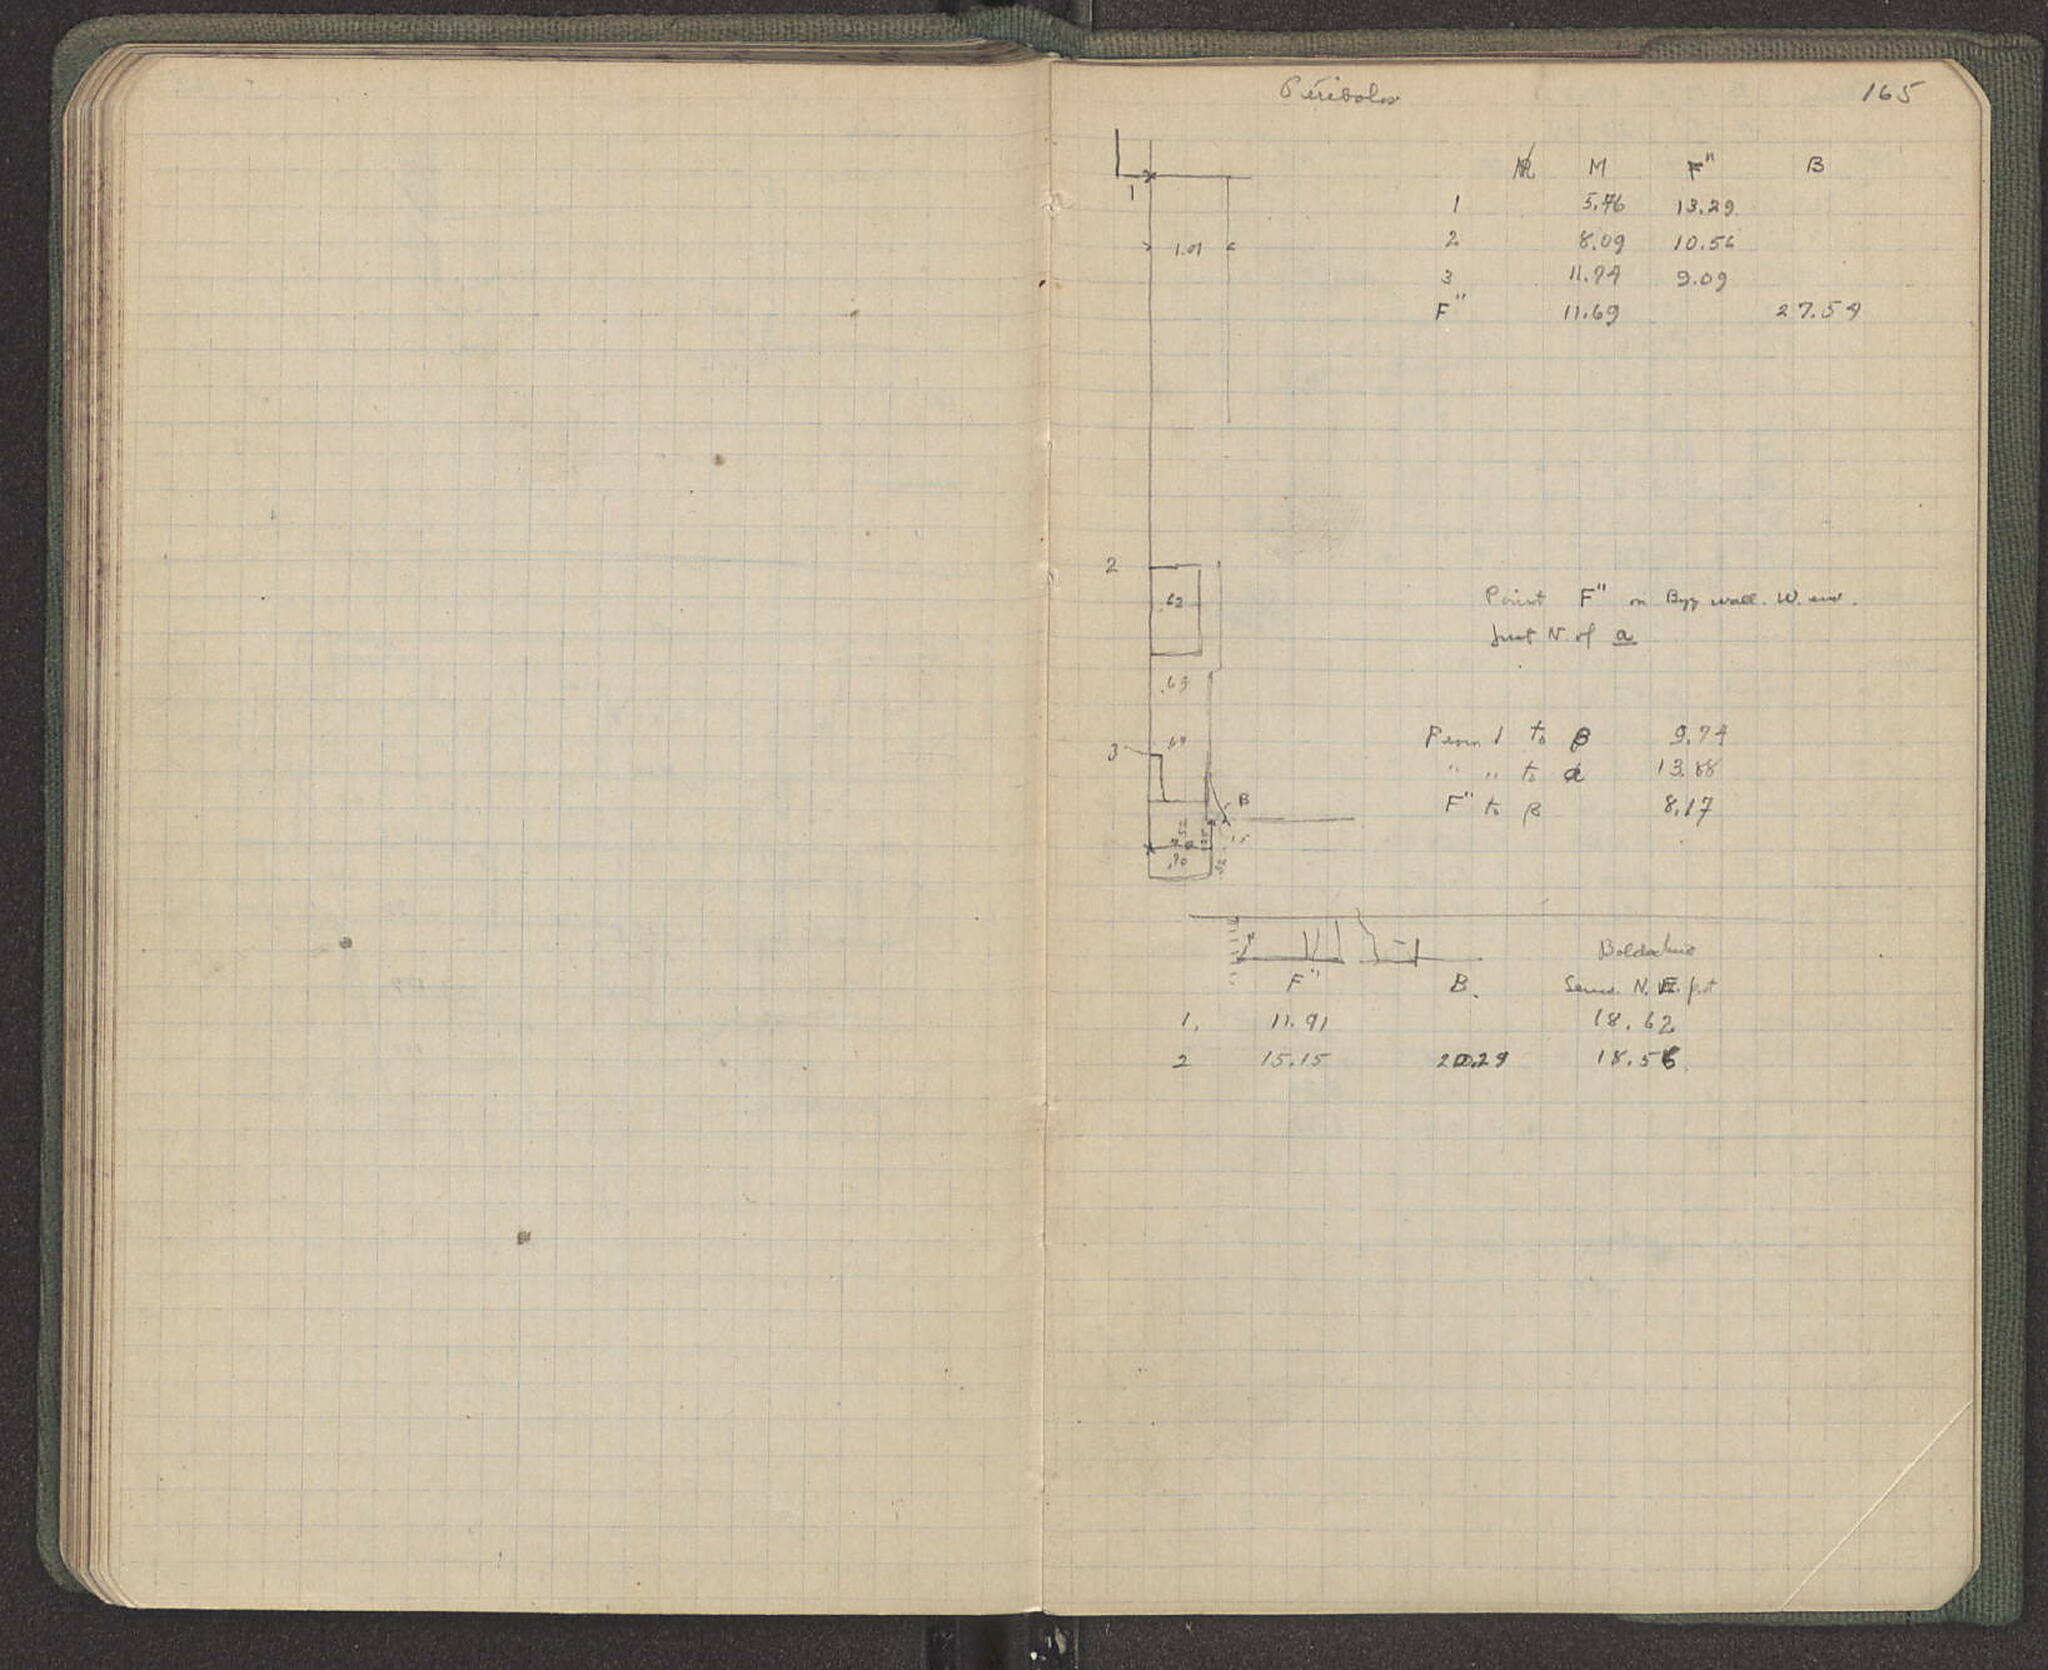 Peribolos 165
M F" B
1 5.76 13.29
2 8.09 10.56
3 11.74 9.09
F" 11.69 27.54
1
1.01
2
.62
Point F" on Byz wall. W. end.
just N of a
.69
From 1 to β 9.74
3
" " to α 13.88
B
F" to β 8.17
.52
.70
F" B. N. E. 
1. 11.91 18.62
2 15.15 20.29 18.56